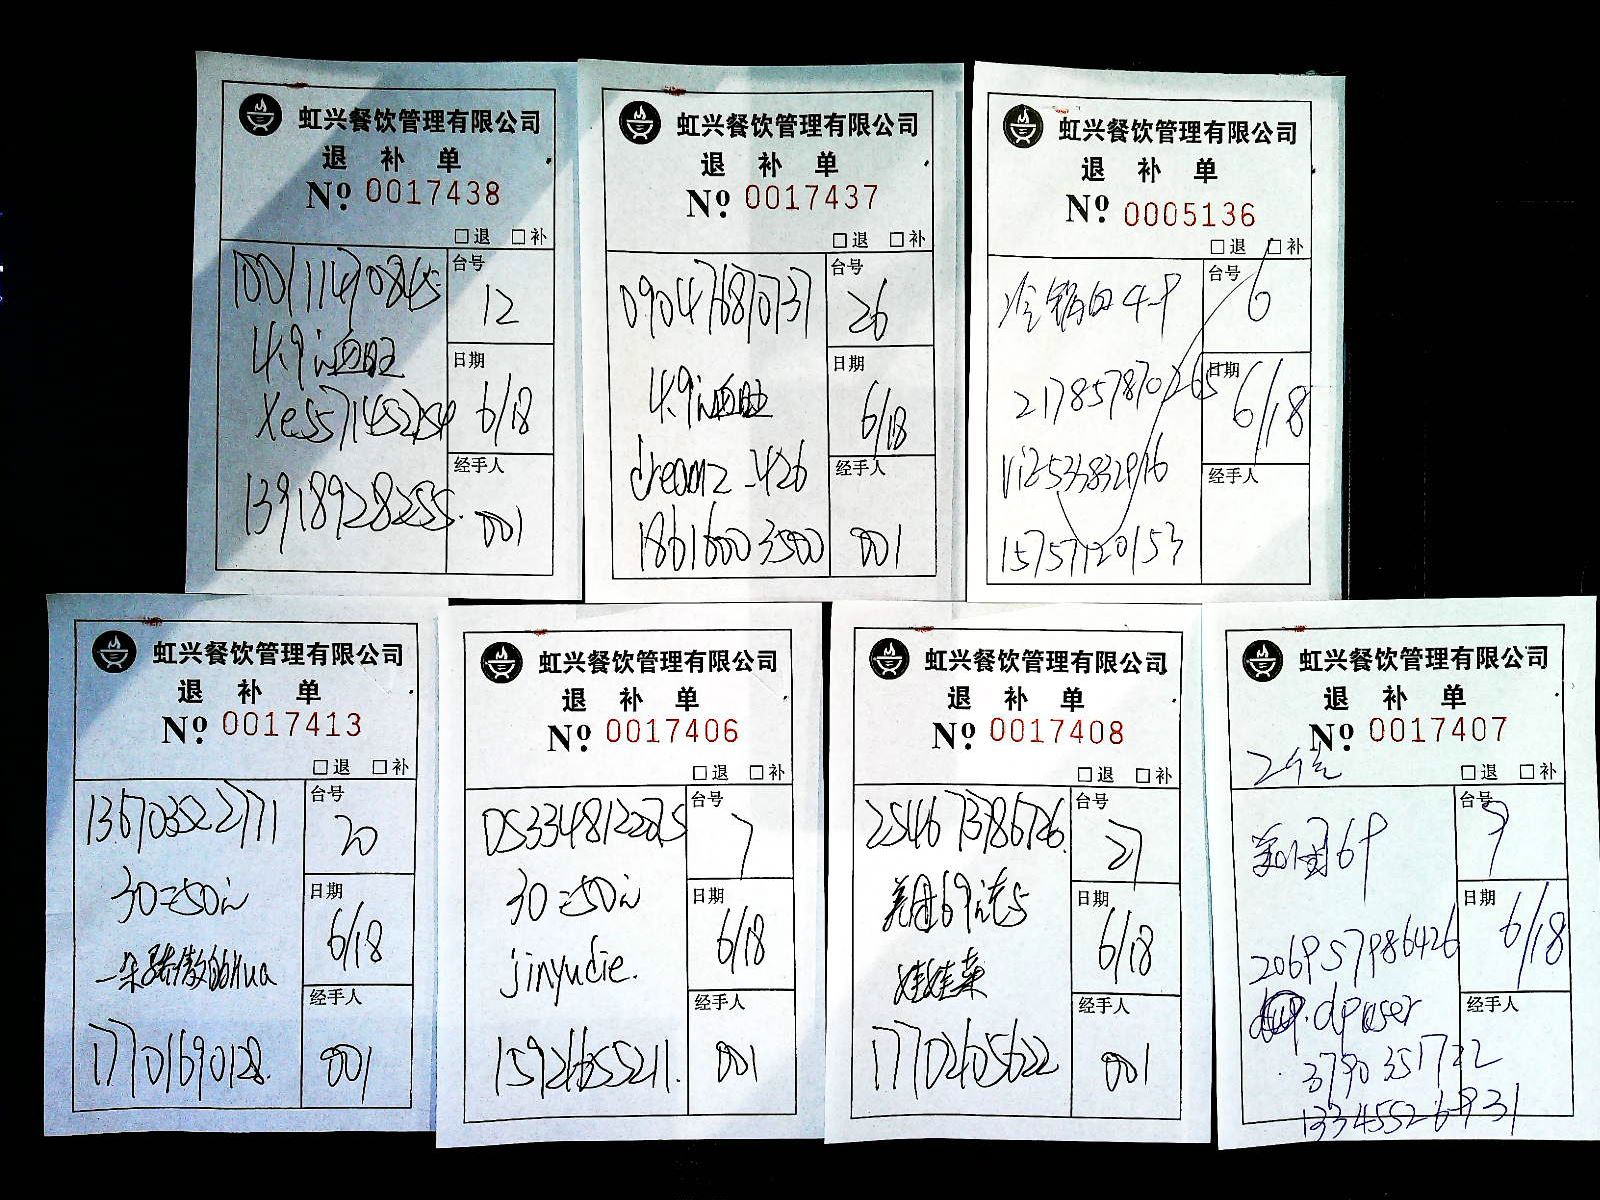 虹兴餐饮管理有限公司
退 补 单
Nº 0017438
□退 □补
100111470845
台号
12
4.9 血旺
日期
6/18
xe557145225
经手人
13918928255.
001
虹兴餐饮管理有限公司
退 补 单
Nº 0017437
□退 □补
090476870737
台号
26
4.9 血旺
日期
6/18
dreamz-426
经手人
18616003500
001
虹兴餐饮管理有限公司
退 补 单
Nº 0005136
□退 □补
台号
6
217857870265
日期
6/18
经手人
15757120153
虹兴餐饮管理有限公司
退 补 单
Nº 0017413
□退 □补
台号
20
30=50
日期
6/18
一朵骄傲的Hua
经手人
17701690128.
001
虹兴餐饮管理有限公司
退 补 单
Nº 0017406
□退 □补
台号
7
30=50
日期
6/18
jinyudie.
经手人
15921655211.
001
虹兴餐饮管理有限公司
退 补 单
Nº 0017408
□退 □补
254673786726.
台号
27
美团69 送5
日期
6/18
娃娃菜
经手人
17702605622
001
虹兴餐饮管理有限公司
退 补 单
Nº 0017407
□退 □补
台号
美团69
日期
6/18
206957986426
dpuser
经手人
3790351722
13345526931